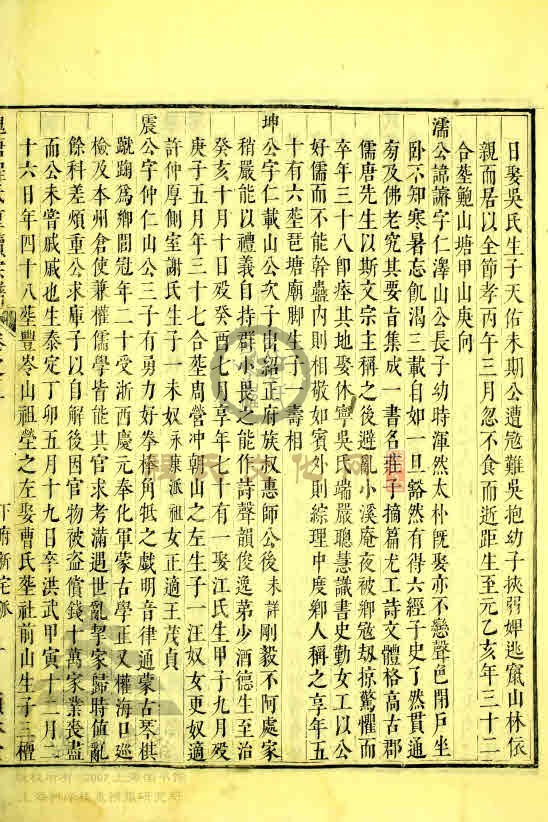 日娶吳氏生子天佑未期公遭寇難吳抱幼子挾弱婢逃竄山林依
親而居以全節孝丙午三月忽不食而逝距生至元乙亥年三十二
合塟鮑山塘甲山庚向
濡公諱 字仁澤山公長子幼時渾然太朴既娶亦不戀聲色閉戶坐
卧不知寒暑忘飢渴三載自如一旦豁然有得六經子史了然貫通
旁及佛老究其要旨集成一書名莊子摘篇尤工詩文體格高古郡
儒唐先生以斯文宗主稱之後避亂小溪庵夜被鄉寇刼掠驚懼而
卒年三十八卽瘞其地娶休寧吳氏端嚴聰慧識書史勤女工以公
好儒而不能幹蠱内則相敬如賓外則綜理中度鄉人稱之享年五
十有六塟琶塘廟脚生子一壽相
坤公字仁載山公次子出紹正府族叔惠師公後未詳剛毅不阿處家
稍嚴能以禮義自持群小畏之能作詩聲韻俊逸弟少酒德生至治
癸亥十月十日殁癸酉七月享年七十有一娶江氏生甲子九月殁
庚子五月年三十七合塟周營冲朝山之左生子一汪奴女更奴適
許仲厚側室謝氏生子一未奴永康派祖女正適王茂貞
震公字仲仁山公三子有勇力好拳棒角抵之戲明音律通蒙古琴棋
蹴踘為鄉閭冠年二十受浙西慶元奉化軍蒙古學正又權海口巡
檢及本州倉使兼權儒學皆能其官求考滿遇世亂挈家歸時值亂
餘科差頗重公求庫子以自解後因官物被盗償錢十萬家業喪盡
而公未嘗戚戚也生泰定丁卯五月十九日卒洪武甲寅十一月二
十六日年四十八塟豐岑山祖塋之左娶曹氏塟社前山生子三檀
下府新宅派
版权所有 2007 上海图书馆